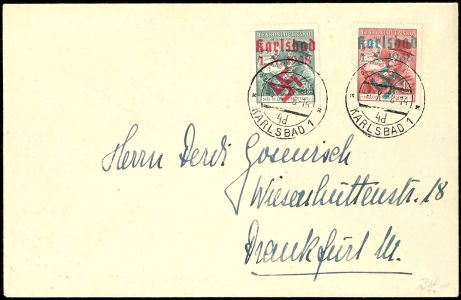 Karlsbad
1.X.1938
Karlsbad
KARLSBAD 1
4d
KARLSBAD 1
4d
Herrn Ferdi
Wiesenhüttenstr. 18
Frankfurt M.